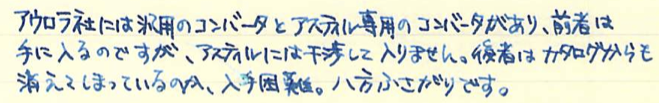 アウロラ社には汎用のコンバータとアスティル専用のコンバータがあり、前者は
手に入るのですが、アスティルには干渉して入りません。後者はカタログからも
消えてしまっているのか、入手困難。八方ふさがりです。